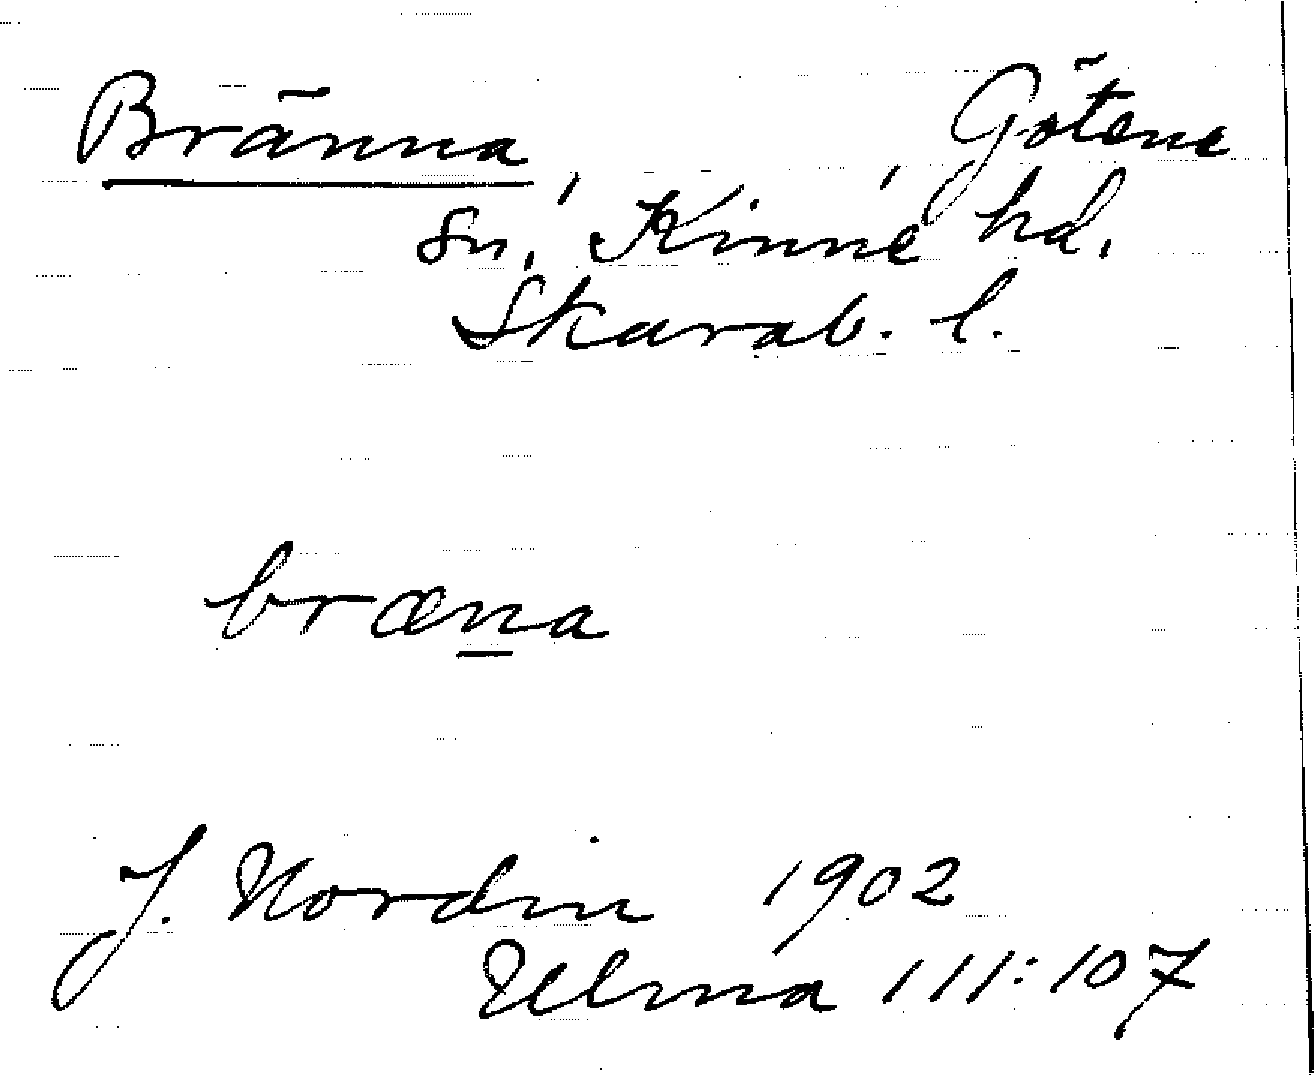 Bränna, Götene
sn, Kinne hd,
Skarab. l.
bræna
J. Nordin 1902
Ulma 111:107